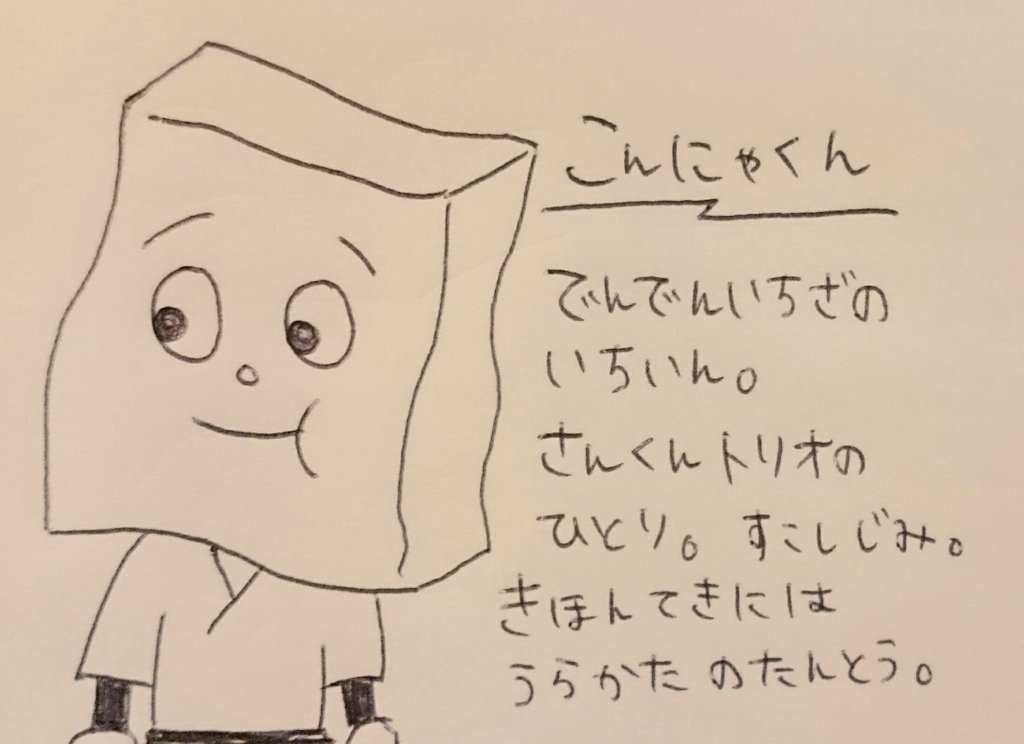 こんにゃくん
でんでんいちざの
いちいん。
さんくんトリオの
ひとり。すこしじみ。
きほんてきには
うらかたのたんとう。